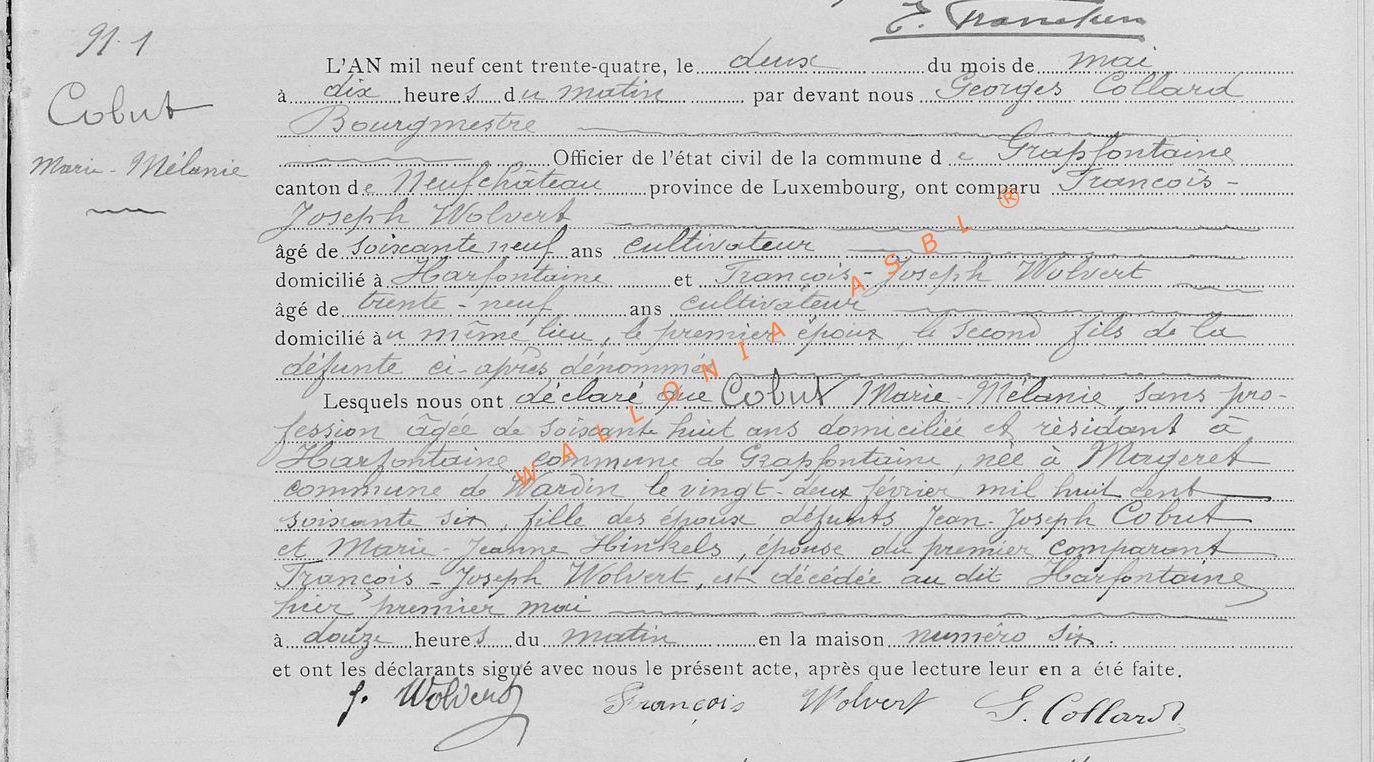 E. Francken
N. 1
Cobut
Marie-Mélanie
L'AN mil neuf cent trente-quatre, le deux du mois de mai
à dix heures du matin par devant nous Georges Collard
Bourgmestre
Officier de l'état civil de la commune de Grapfontaine
canton de Neufchâteau province de Luxembourg, ont comparu François-
Joseph Wolvert
âgé de soixante neuf ans cultivateur
domicilié à Harfontaine et François-Joseph Wolvert
âgé de trente-neuf ans cultivateur
domicilié àu même lieu, le premier époux, le second fils de la
défunte ci-après dénommée
Lesquels nous ont déclaré que Cobut Marie-Mélanie, sans pro-
fession âgée de soixante huit ans domiciliée et résidant à
Harfontaine commune de Grapfontaine née à Mageret
commune de Wardin le vingt-deux février mil huit cent
soixante six, fille des époux défunts Jean-Joseph Cobut
et Marie-Jeanne Hinkels, épouse du premier comparant
François-Joseph Wolvert, est décédée au dit Harfontaine
hier premier mai
à douze heures du matin en la maison numéro six.
et ont les déclarants signé avec nous le présent acte, après que lecture leur en a été faite.
J. Wolvert François Wolvert G. Collard
WALLONIA ASBL ®